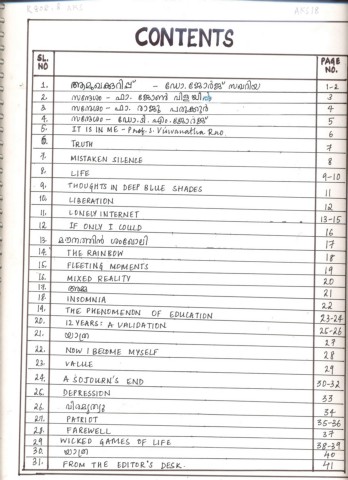 CONTENTS
SL. NO PAGE NO.
1. ആമുഖക്കുറിപ്പ് - ഡോ. ജോർജ് സഖറിയ 1-2
2. സന്ദേശം - ഫാ. ജോൺ 3
3. സന്ദേശം - ഫാ. രാജു 4
4. സന്ദേശം - ഡോ. ടി. എം. ജോർജ് 5
5. IT IS IN ME - Prof. S. Viswanatha Rao 6
6. TRUTH 7
7. MISTAKEN SILENCE 8
8. LIFE 9-10
9. THOUGHTS IN DEEP BLUE SHADES 11
10. LIBERATION 12
11. LONELY INTERNET 13-15
12. IF ONLY I COULD 16
13. മൗനത്തിൻ 17
14. THE RAINBOW 18
15. FLEETING MOMENTS 19
16. MIXED REALITY 20
17. അമ്മ 21
18. INSOMNIA 22
19. THE PHENOMENON OF EDUCATION 23-24
20. 12 YEARS: A VALIDATION 25-26
21. യാത്ര 27
22. NOW I BECOME MYSELF 28
23. VALUE 29
24. A SOJOURN'S END 30-32
25. DEPRESSION 33
26. 34
27. PATRIOT 35-36
28. FAREWELL 37
29. WICKED GAMES OF LIFE 38-39
30. യാത്ര 40
31. FROM THE EDITOR'S DESK. 41